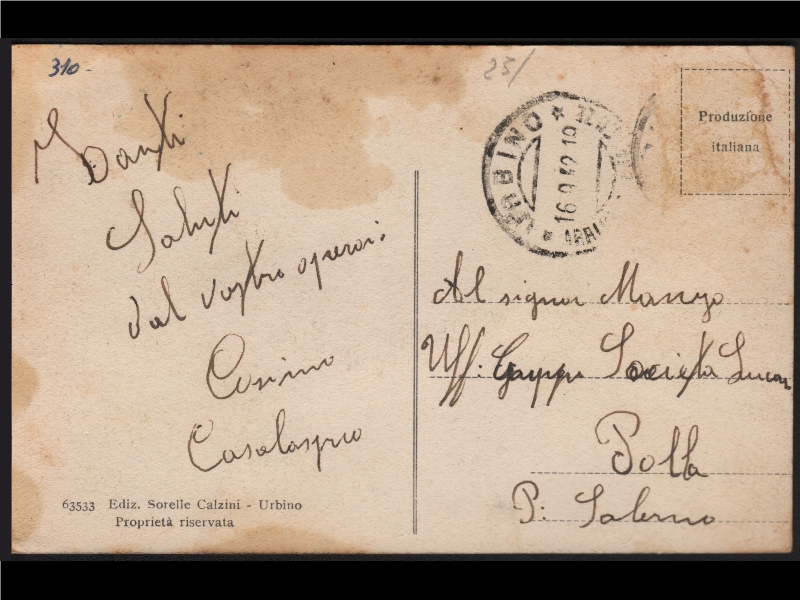 310-
25/
Tanti
Saluti
dal vostro operai:
Cosimo
Casalaspro
63533 Ediz. Sorelle Calzini - Urbino
Proprietà riservata
URBINO
16.9.52.19
ARRI
Produzione
italiana
Al signor Manzo
Uff: Società
Polla
P: Salerno